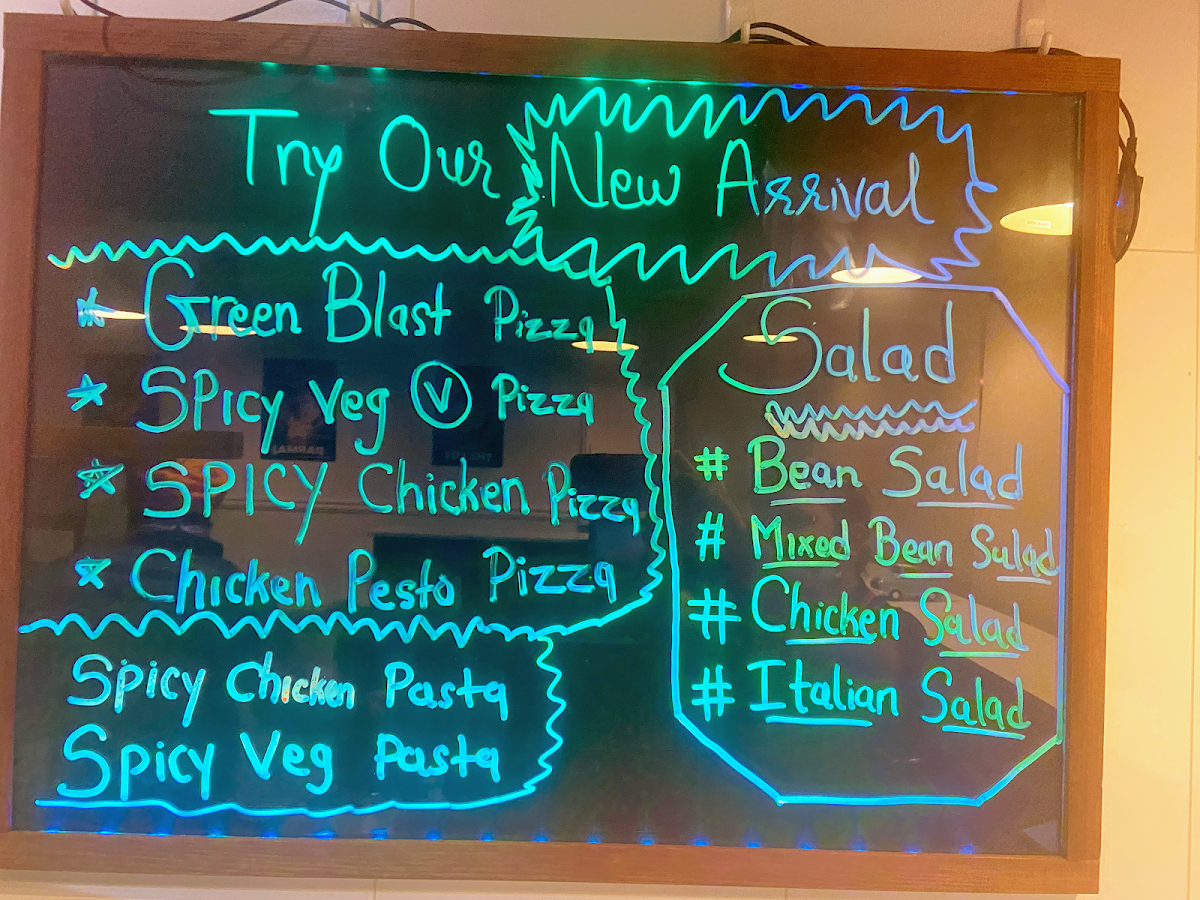 Try Our New Arrival
* Green Blast Pizza
* Spicy Veg Ⓥ Pizza
* SPICY Chicken Pizza
* Chicken Pesto Pizza
Spicy Chicken Pasta
Spicy Veg Pasta
Salad
# Bean Salad
# Mixed Bean Salad
# Chicken Salad
# Italian Salad